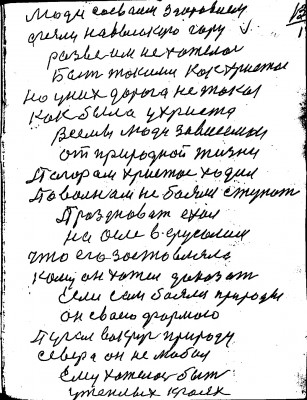 Люди со своим здоровьем
разве им не хотелос
Быт такими как христос
Но у них дорога не такая
Как была у христа
Все мы люди зависимы
от природной жизни
По горам христос ходил
По волнам не боялся ступат
Праздноват ехал
на осле в ерусалим
что его заставляло
Кому он хотел доказат
Если сам боялся природы
он своею формою
Пугал вокруг природу
севера он не любил
Ему хотелос быт
у теплых краях